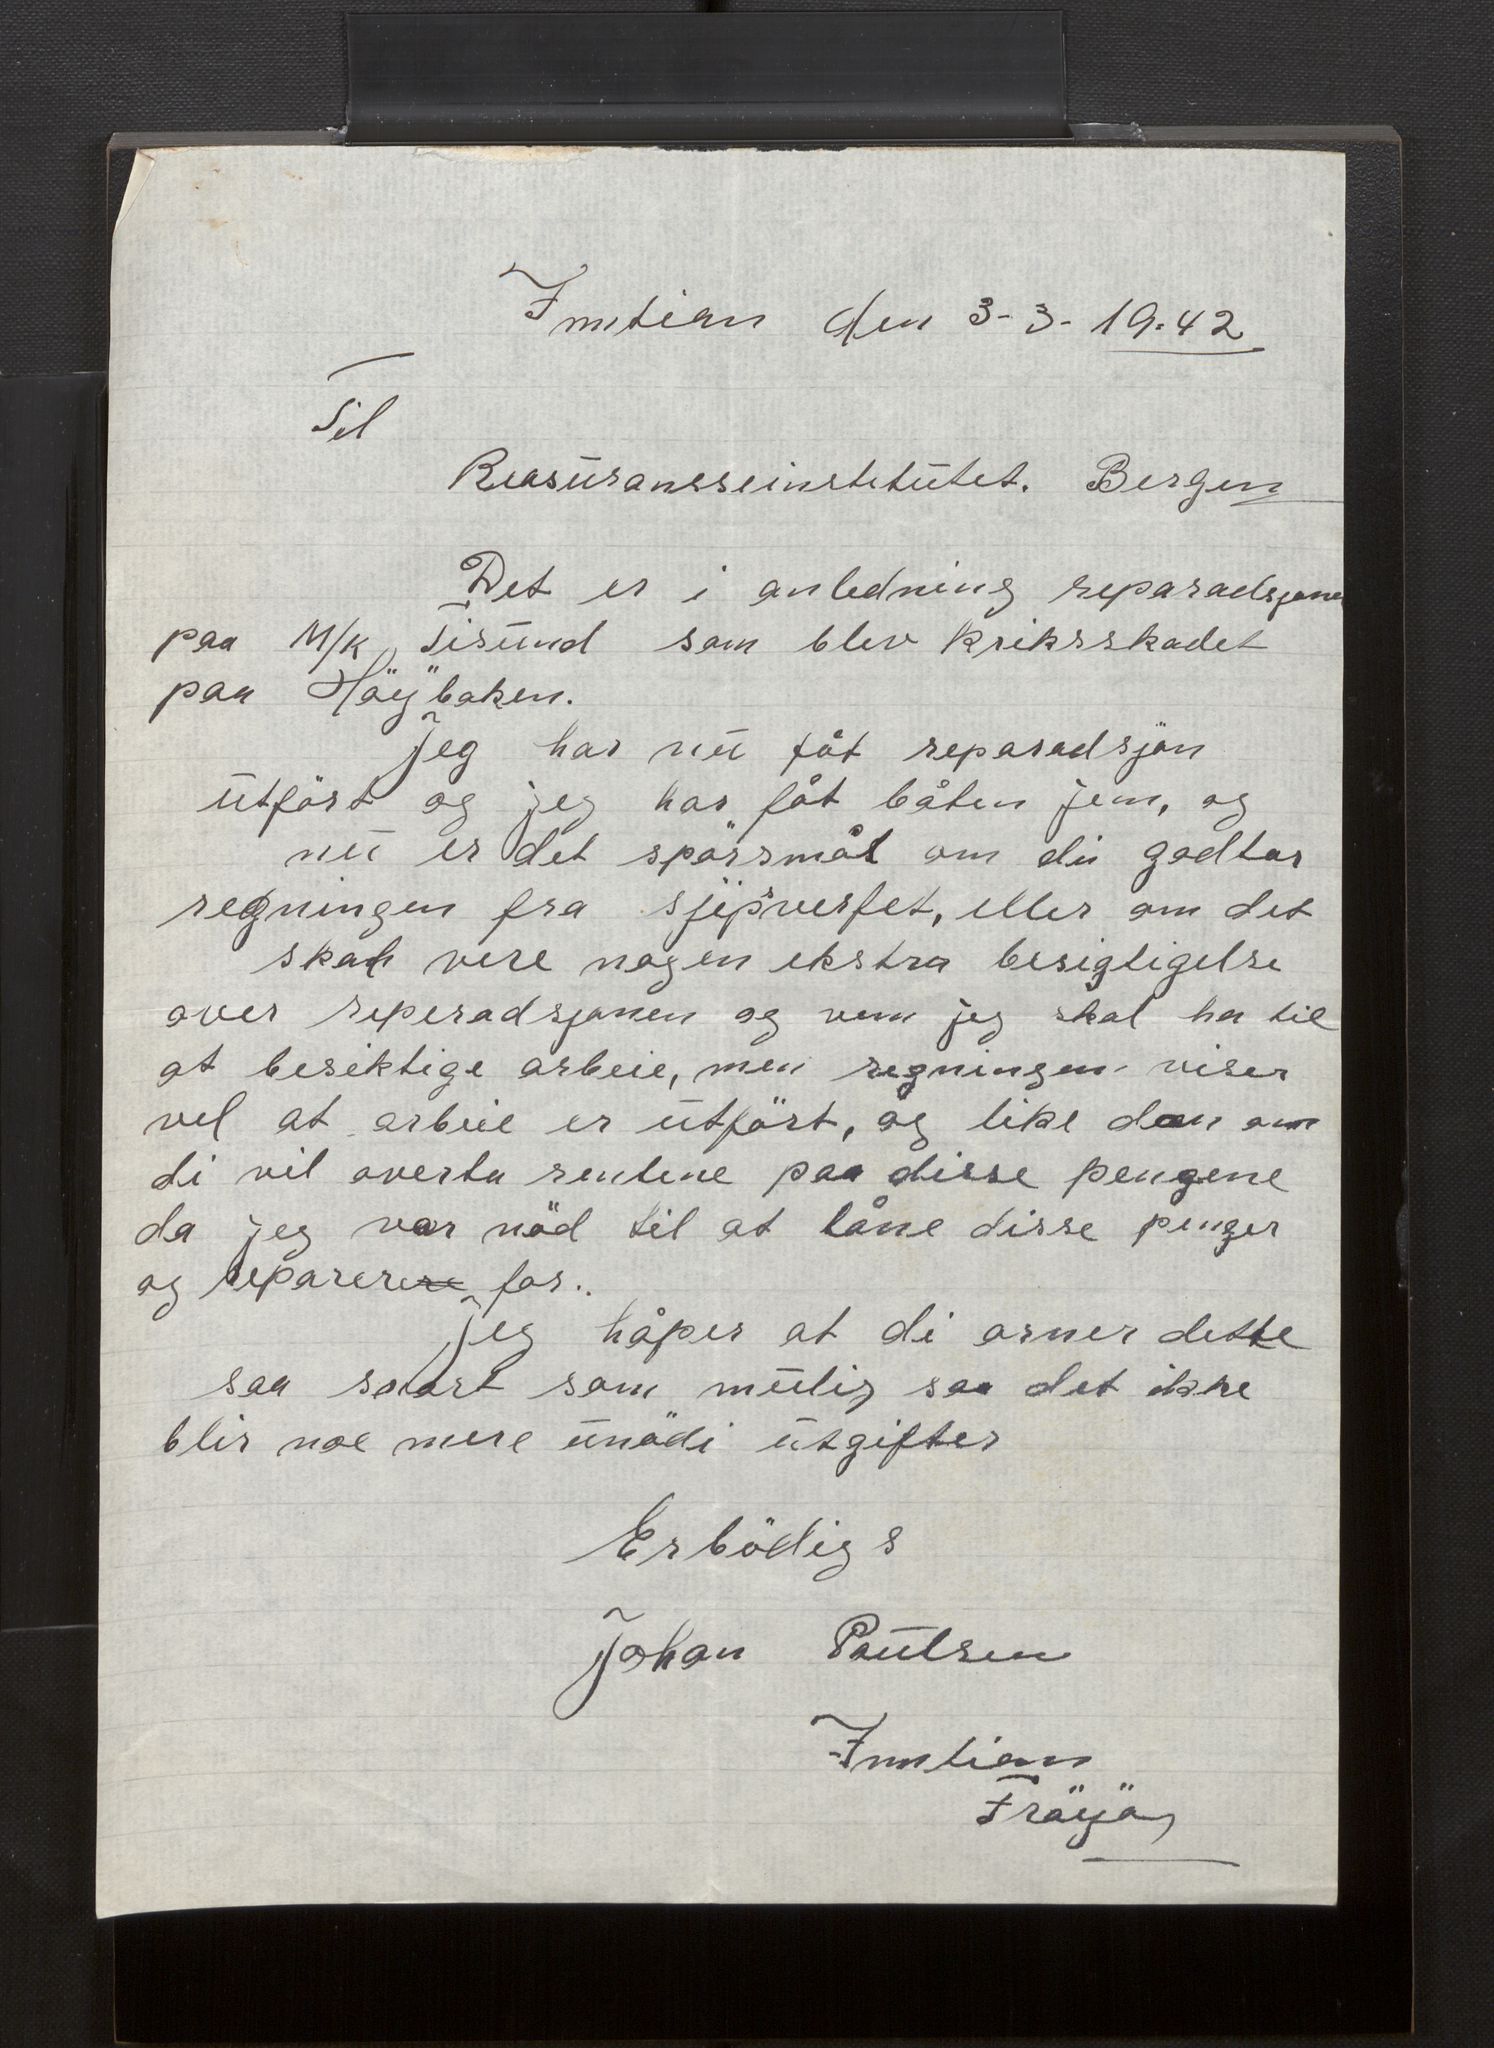 Inntian den 3-3-19.42
Til
Reasüransseinstitütet. Bergen
Det er i anledning reparadsjonen
paa M/K Tisünd som blev kriksskadet
paa Höybaken.
Jeg har nü fåt reparadsjön
ütfört og jeg har fåt båten jem, og
nü er det spörsmål om di godtar
regningen fra sjipsverfet, eller om det
skal vere nogen ekstra besigtigelse
over reperadsjonen og vem jeg skal ha til
at besiktige arbeie, men regningen viser
vel at arbeie er ütfört, og like dan om
di vil overta rentene paa disse pengene
da jeg var nöd til at låne disse penger
og reparere for.
Jeg håper at di orner dette
saa snart som mülig saa det ikke
blir noe mere ünödi ütgifter
Erbödigs
Johan Paülsen
Inntian
Fröyö